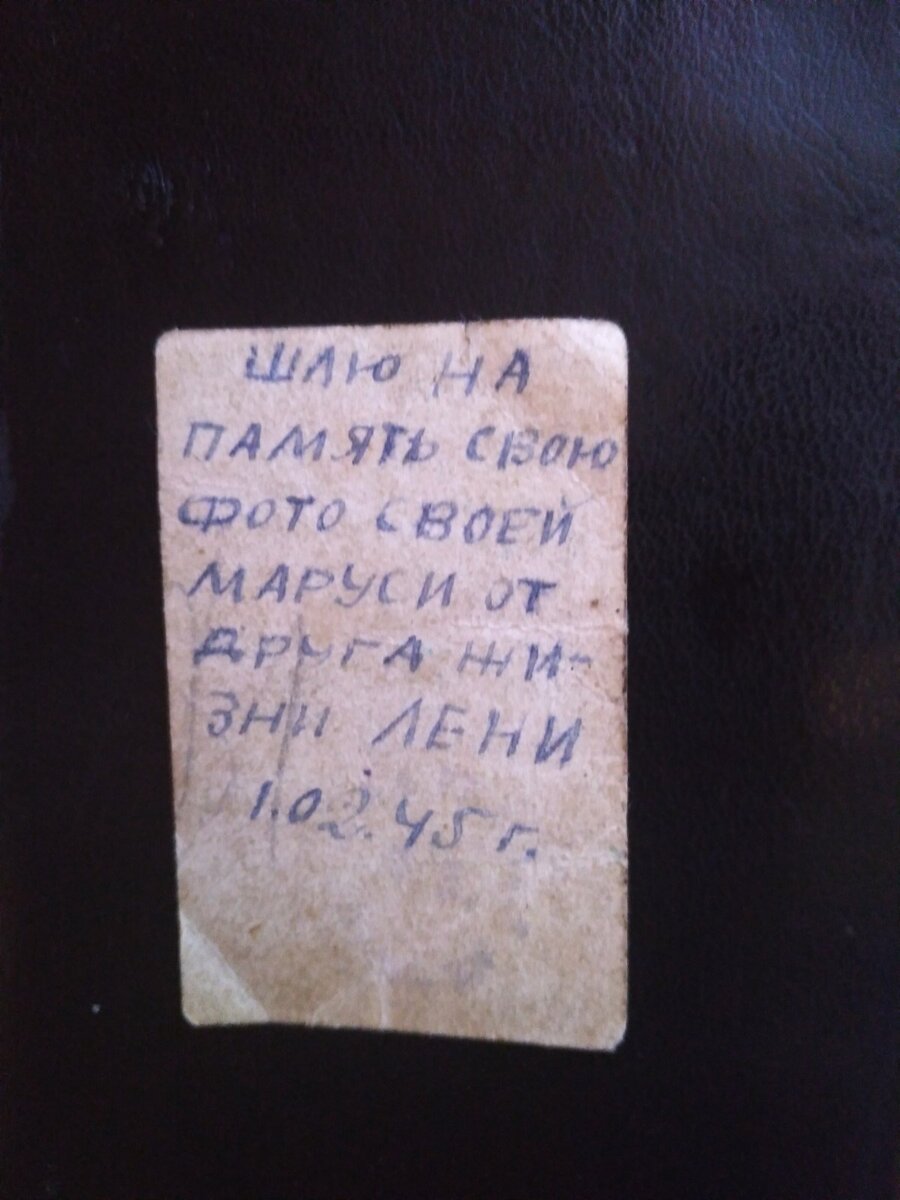 ШЛЮ НА
ПАМЯТЬ СВОЮ
ФОТО СВОЕЙ
МАРУСИ ОТ
ДРУГА ЖИ-
ЗНИ ЛЕНИ
1.02.45 г.